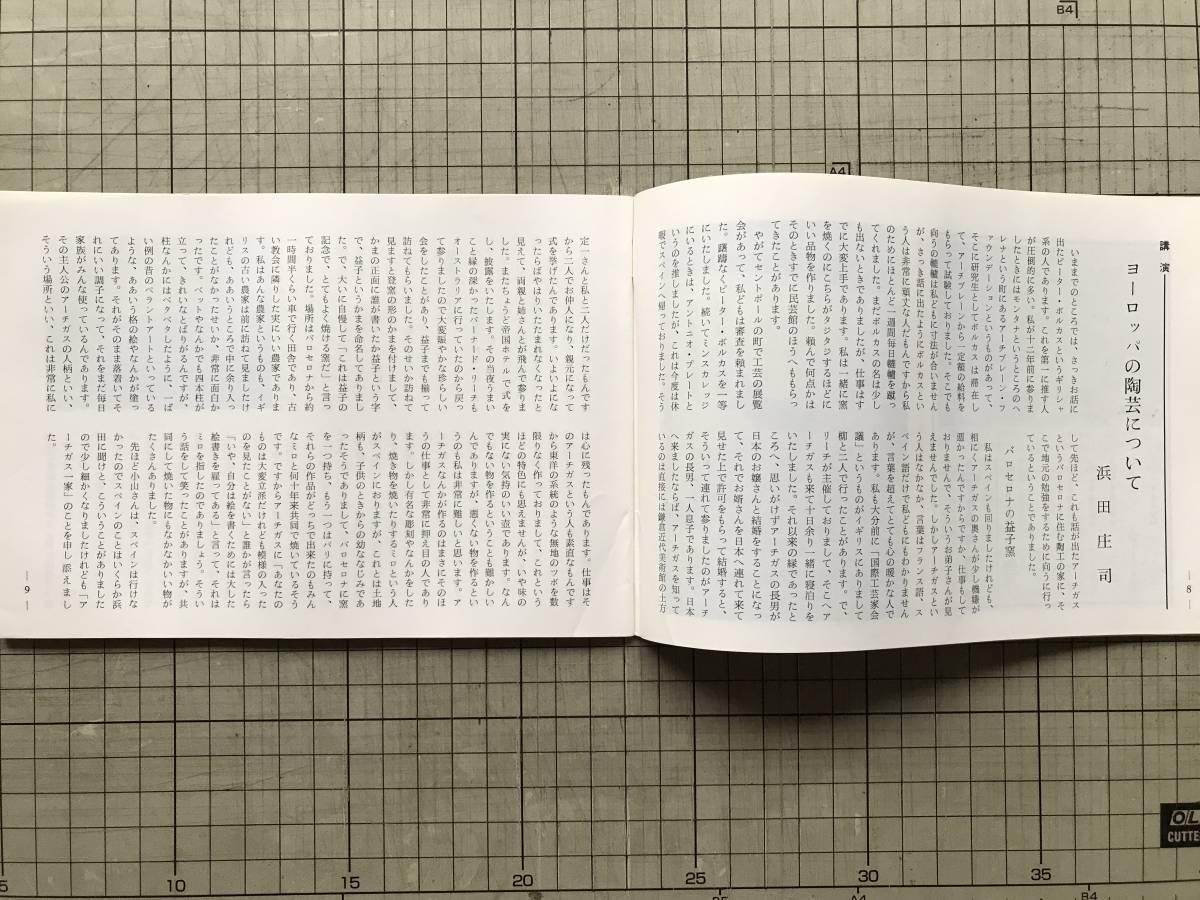 講演
ヨーロッパの陶芸について
浜田庄司
いままでのところでは、さっきお話に
出たピーター・ボルカスというギリシャ
系の人であります。これを第一に推す人
が圧倒的に多い。私が十二年前に参りま
したときにはモンタナというところのヘ
レナという町にあるアーチブレー・フ
ァウンデーションというものがあって、
そこに研究生としてボルカスは滞在し
て、アーチブレーンから一定額の給料を
もらって試験しておりました。そこでも
向うの轆轤は私どもに寸法が合いません
が、さっき話に出たようにボルカスとい
う人は非常に頑丈な人だもんですから私
のためにほとんど一週間毎日轆轤を蹴っ
てくれました。まだボルカスの名は少し
も出ないときでありましたが、仕事はす
でに大変上手であります。私は一緒に窯
を焼くのにこちらがタジタジするほどに
いい品物を作りました。頼んで何点かは
そのときすでに民芸館のほうへももらっ
てきたことがあります。
やがてセントポールの町で工芸の展覧
会があって、私どもは審査を頼まれまし
た。躊躇なくピーター・ボルカスを一等
にいたしました。続いてミンスカレッジ
にいるときは、アントニオ・プレートと
いうのを推しましたが、これは今度は休
暇でスペインへ帰っておりました。そう
して先ほど、これも話が出たアーチガス
というバロセロナに住む陶工の家に、そ
こで地元の勉強をするために向うに行っ
ているということでありました。
バロセロナの益子窯
私はスペインも回りましたけれども、
相にくアーチガスの奥さんが少し機嫌が
悪かったんですからですか、仕事もして
おりませんで、そういうお弟子さんが見
えませんでした。しかしアーチガスとい
う人はなかなか、言葉はフランス語、ス
ペイン語だけで私どもにもわかりません
が、言葉を超えてとても心の暖かな人で
あります。私も大分前に「国際工芸家会
議」というものがイギリスにありまして
柳と三人で行ったことがあります。で、
リーチが主催しておりまして、そこへア
ーチガスも来て十日余り一緒に寝泊りを
いたしました。それ以来の縁であったと
ころへ、思いがけずアーチガスの長男が
日本のお嬢さんと結婚をすることになっ
て、それでお婿さんを日本へ連れて来て
見せた上で許可をもらって結婚すると、
そういって連れて参りましたのがアーチ
ガスの長男、一人息子であります。日本
へ来ましたならば、アーチガスを知って
いるのは直接には鎌倉近代美術館の土方
— 8 —
定一さんと私と二人だけだったもんです
から二人でお仲人になり、親元になって
式を挙げたんであります。いよいよにな
ったらばやはりいたたまれなくなったと
見えて、両親と姉さんとが飛んで参りま
した。またちょうど帝国ホテルで式を
し、披露をいたします。その当夜うまい
こと縁の深かったバーナード・リーチも
オーストラリアに行っていたのから戻っ
て参りましたので大変賑やかな珍らしい
会をしたことがあり、益子までも揃って
訪ねてもらいました。そのせいか訪ねて
見ますと登窯の形のかまを付けまして、
かまの正面に誰が書いたか益子という字
で、益子というかまを命名してありまし
た。で、大いに自慢して「これは益子の
記念で、とてもよく焼ける窯だ」と言っ
ておりました。場所はバロセロナから約
一時間半くらい車で行く田舎であり、古
い教会に隣りした実にいい農家でありま
す。私はあんな農家というものも、イギ
リスの古い農家は前に訪ねて見ましたけ
れども、ああいうところで中に余り入っ
たことがなかったせいか、非常に面白か
ったです。ベットやなんかでも四本柱が
立って、きれいなとばりがるんですが、
柱なんかにはベタベタしたように、いっぱ
い例の昔のペラントアートといっている
ような、ああいう格の絵やなんかが塗っ
てあります。それがそのまま落着いてそ
れにいい調子になって、それをまだ毎日
家族がみんな使っているんであります。
その主人公のアーチガスの人の柄といい、
そういう場所といい、これは非常に私に
は心に残ったもんであります。仕事はそ
のアーチガスという人も素直なもんです
から東洋の系統のような無地のツボを数
限りなく作っておりまして、これという
ほどの特色にも思えませんが、いや味の
実にない気持のいい壺であります。なん
でもない物を作るということも難かしい
んでありますが、悪くない物を作るとい
うのも私は非常に難しいと思います。ア
ーチガスなんかが作るのはまさにそのほ
うの仕事として非常に押え目の人であり
ます。しかし有名な彫刻やなんかをした
り、焼き物を焼いたりするミロという人
がスペインにおりますが、これとは土地
柄も、子供のときからの幼なじみであ
ったそうでありまして、バロセロナに窯
を一つ持ち、もう一つはパリに持って、
それらの作品がどっちで出来たのもみん
なミロと何十年来共同で焼いているそう
です。ですからアーチガスに「あなたの
ものは大変立派だけれども模様の入った
のを見たことがない」と誰かが言ったら
「いや、自分は絵を書くためには大した
絵書きを雇ってある」と言って、それは
ミロを指したのでありましょう。そうい
う話をして笑ったことがありますが、共
同にして焼いた物にもなかなかいい物が
たくさんありました。
先ほど小山さんは、スペインは行けな
かったのでスペインのことはいくらか浜
田に聞けと、こういうことがありました
ので少し細かくなりましたけれども「ア
ーチガス一家」のことを申し添えまし
た。
— 9 —
B4
A4
5
10
15
20
25
30
35
B5
A4
B4
OL
CUTTE